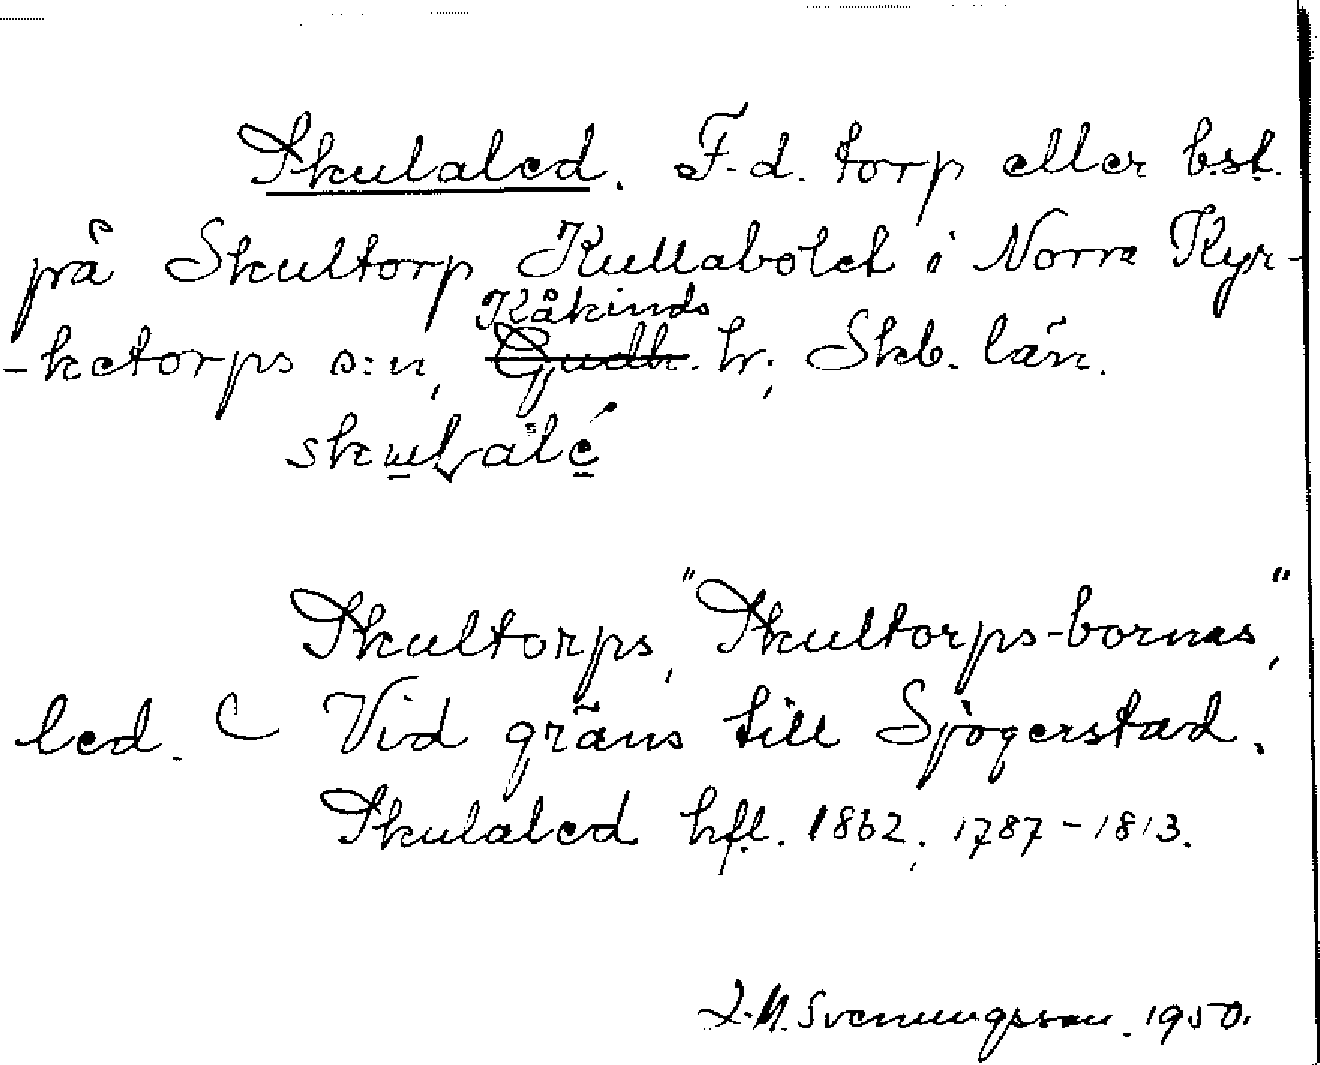 Skulaled. F.d. torp eller bst.
på Skultorp Kullabolet i Norra Kyr-
Kåkinds
-ketorps s:n, Gudh. hr; Skb. län.
Skultorps, "Skultorps-bornas",
led. Vid gräns till Sjogerstad.
Skulaled hfl. 1862; 1787-1813.
L.M. Svenungsson. 1950.